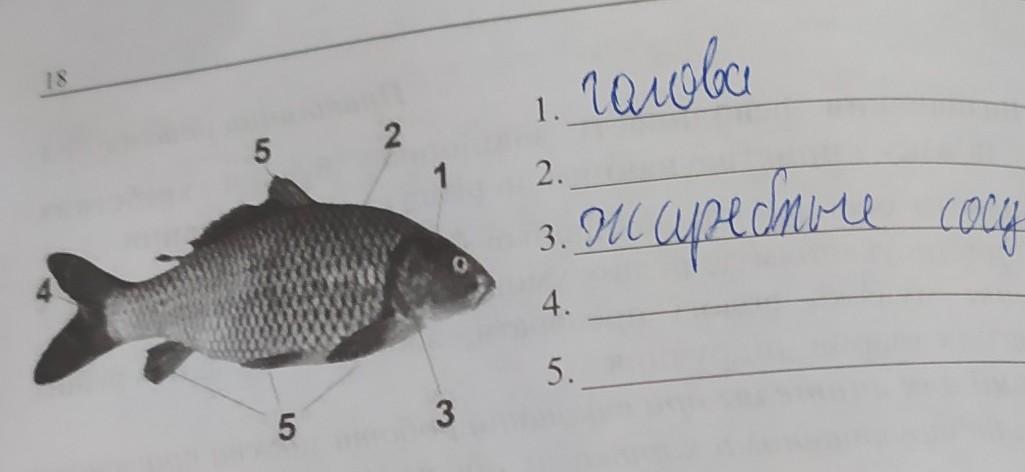 18
5
2
1
4
5
3
1. голова
2.
3. сосу
4.
5.